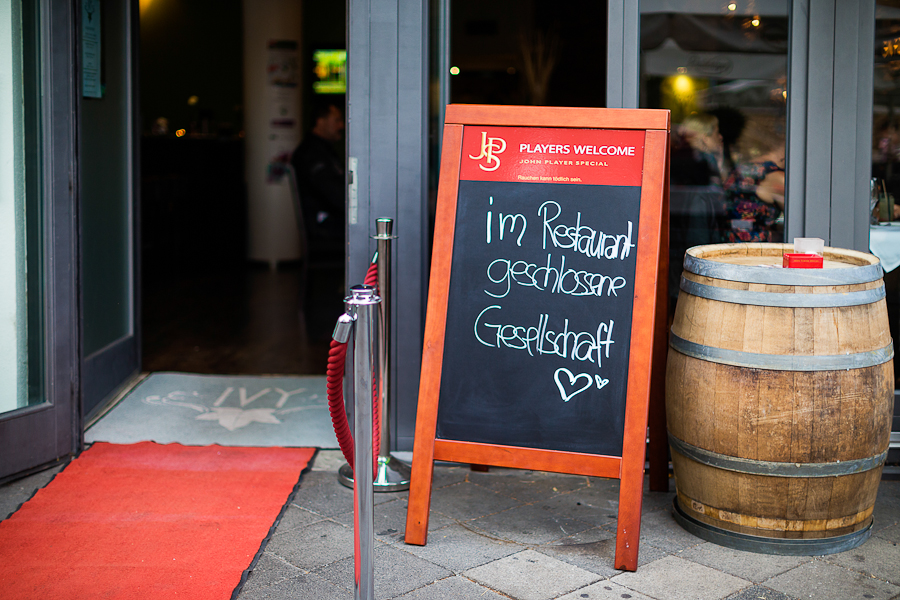 JPS
PLAYERS WELCOME
JOHN PLAYER SPECIAL
Rauchen kann tödlich sein.
im Restaurant
geschlossene
Gesellschaft
IVY